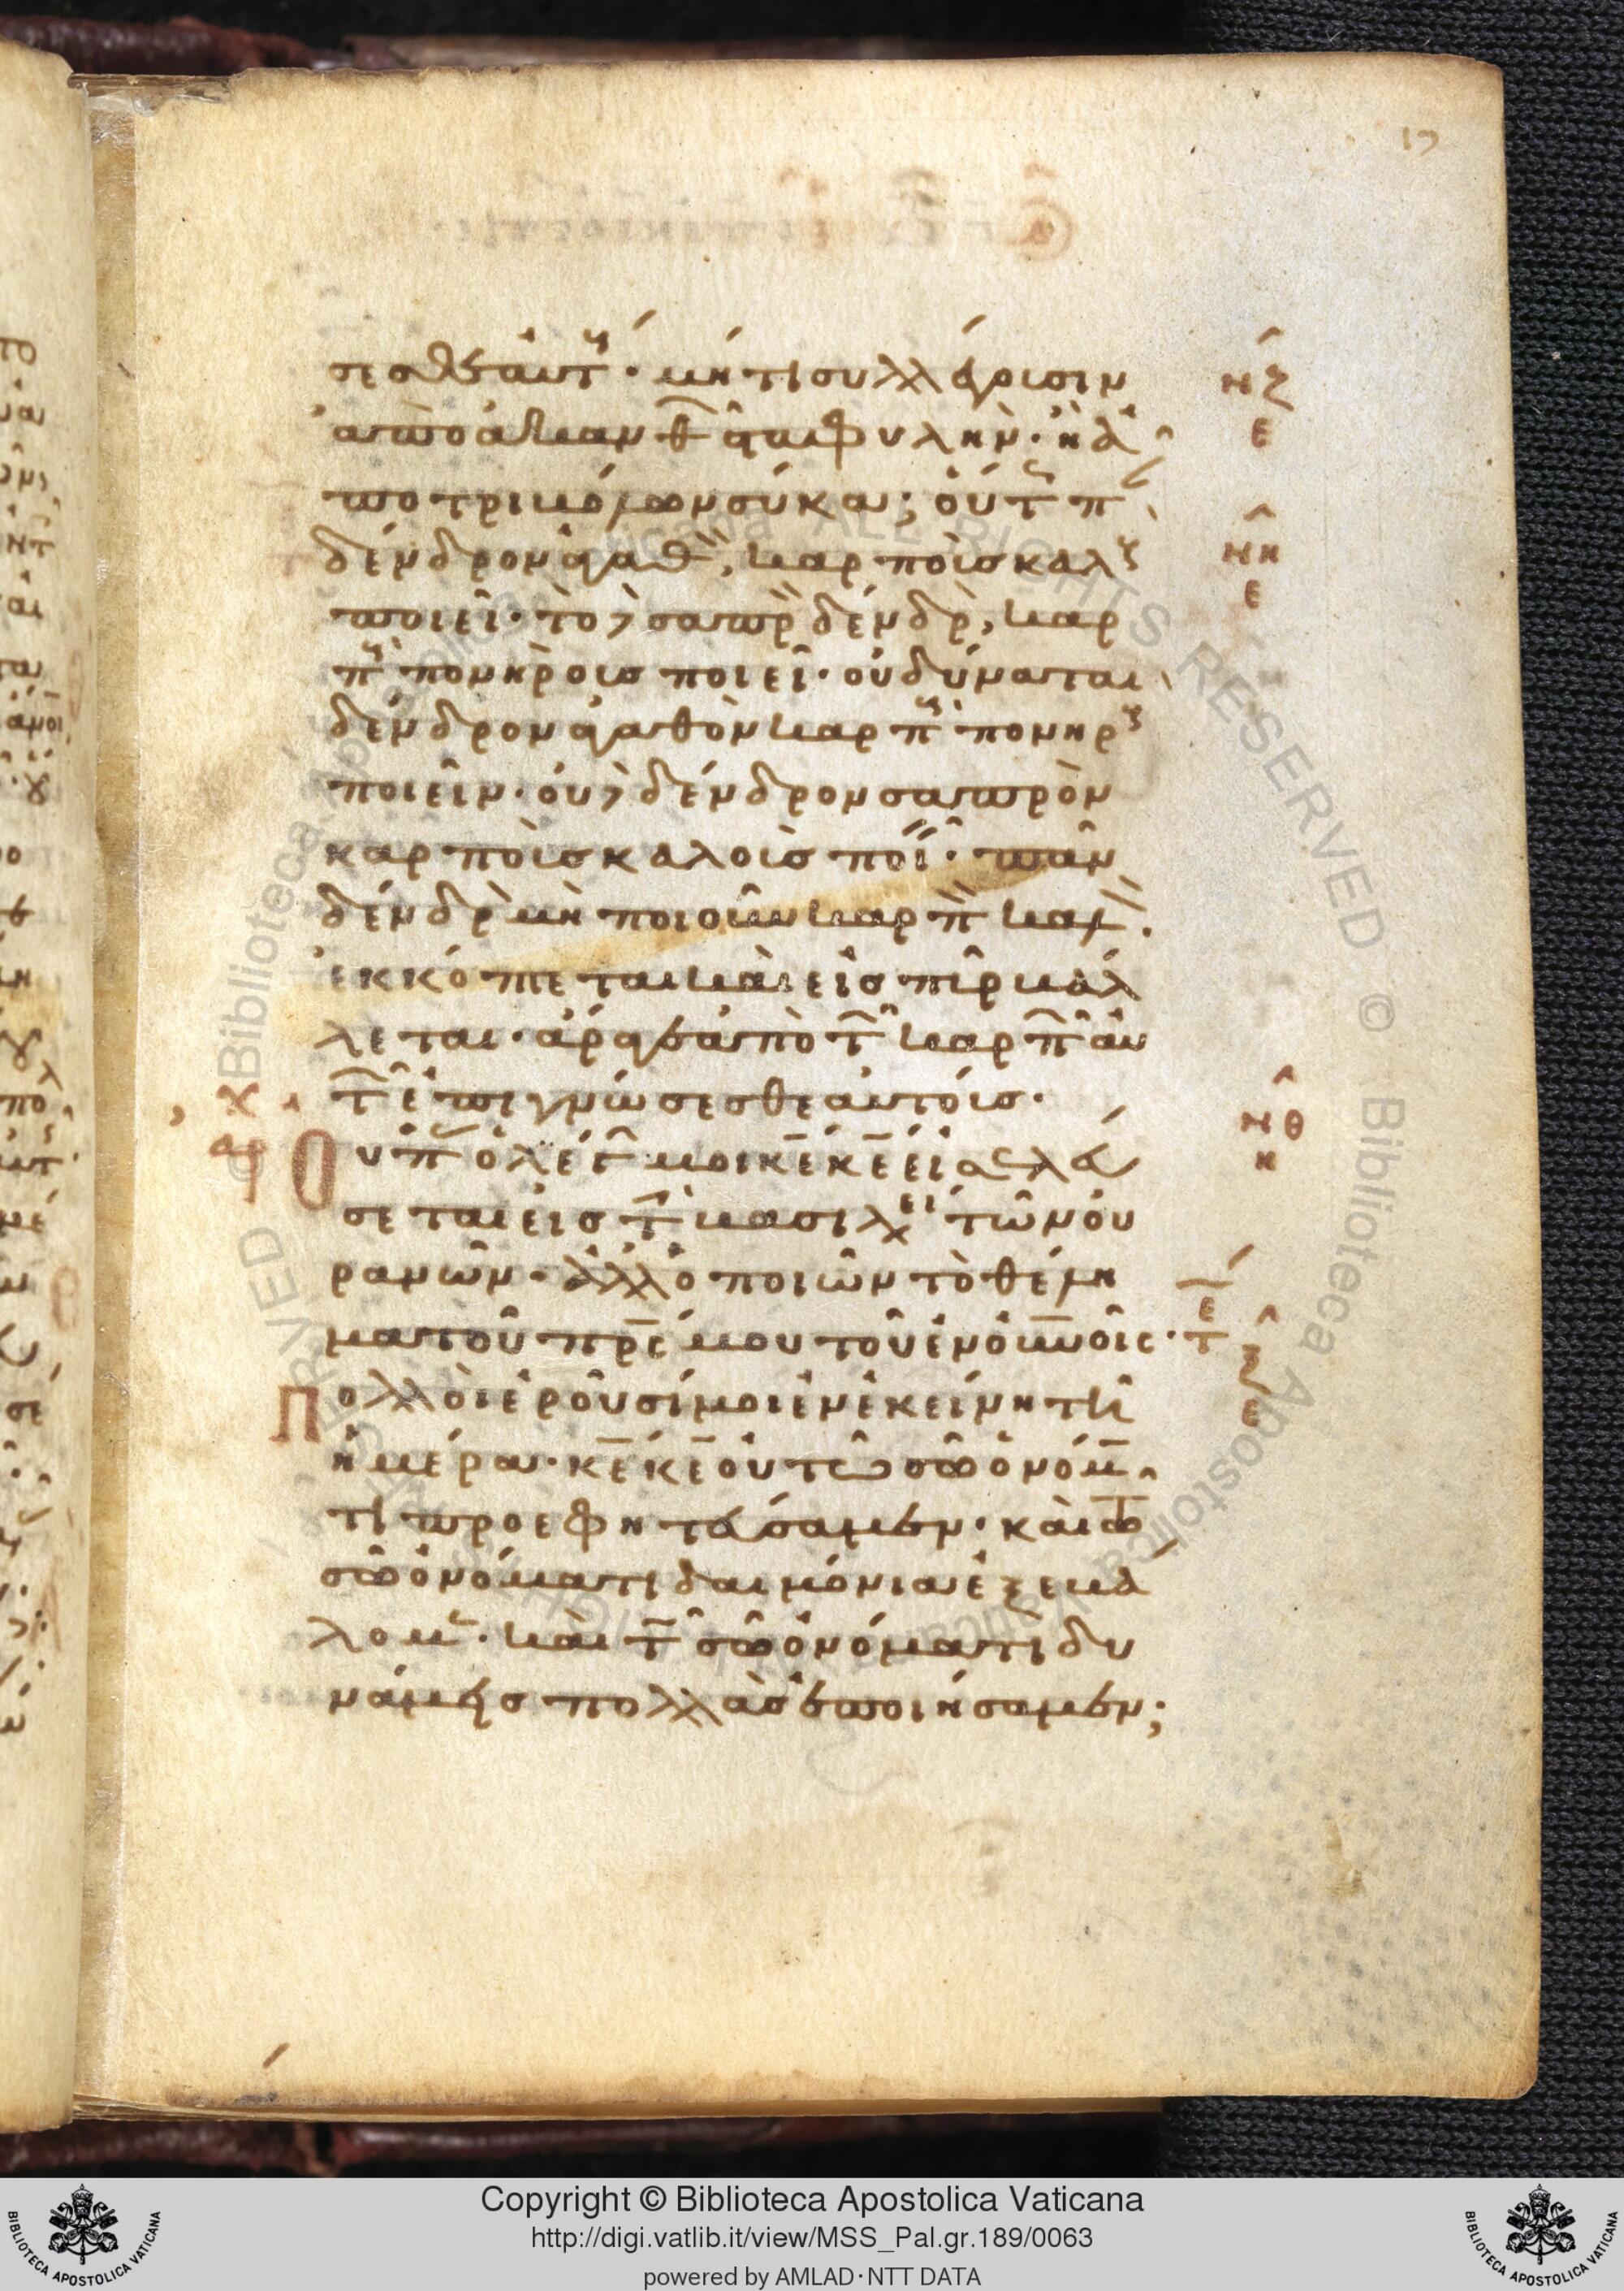 17
σεσθε αὐτούς· μήτι συλλέγουσιν
ἀπὸ ἀκανθῶν σταφυλὴν· ἢ ἀ
πὸ τριβόλων σύκα; οὕτω πᾶν
δένδρον ἀγαθὸν, καρποὺς καλοὺς
ποιεῖ· τὸ δὲ σαπρὸν δένδρον, καρ
ποὺς πονηροὺς ποιεῖ· οὐ δύναται
δένδρον ἀγαθὸν καρποὺς πονηροὺς
ποιεῖν· οὐδὲ δένδρον σαπρὸν
καρποὺς καλοὺς ποιεῖν· πᾶν
δένδρον μὴ ποιοῦν καρπὸν καλὸν.
ἐκκόπτεται καὶ εἰς πῦρ βάλ
λεται· ἄραγε ἀπὸ τῶν καρπῶν αὐ
τῶν ἐπιγνώσεσθε αὐτούς·
Οὐ πᾶς ὁ λέγων μοι κε κε εἰσελεύ
σεται εἰς τὴν βασιλείαν τῶν οὐ
ρανῶν· ἀλλ' ὁ ποιῶν τὸ θέλη
μα τοῦ πρς μου τοῦ ἐν οὐνοῖς·
Πολλοὶ ἐροῦσί μοι ἐν ἐκείνη τῆ
ἡμέρα· κε κε οὐ τῷ σῷ ὀνόμα
τι προεφητεύσαμεν· καὶ τῷ
σῷ ὀνόματι δαιμόνια ἐξεβά
λομεν· καὶ τῷ σῷ ὀνόματι δυ
νάμεις πολλὰς ἐποιήσαμεν;
νζ
ε
νη
ε
νθ
ξ
ε
Copyright © Biblioteca Apostolica Vaticana
http://digi.vatlib.it/view/MSS_Pal.gr.189/0063
powered by AMLAD·NTT DATA
BIBLIOTECA APOSTOLICA VATICANA
BIBLIOTECA APOSTOLICA VATICANA